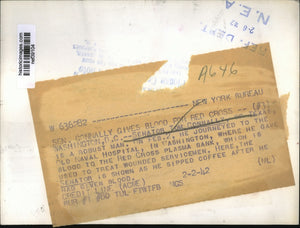 historicimages.com
REF. DEPT.
N.E.A
A646
NEW YORK BUREAU
W 636282
SEN. CONNALLY GIVES BLOOD FOR RED CROSS
WASHINGTON, D.C. -- SENATOR TOM CONNALLY
IS A ROBUST MAN. HE JOURNEYED TO THE
OLD NAVAL HOSPITAL IN WASHINGTON, WHERE HE GAVE
BLOOD TO THE RED CROSS PLASMA BANK, WHICH IS
USED TO TREAT WOUNDED SERVICEMEN. HERE, THE
SENATOR IS SHOWN AS HE SIPPED COFFEE AFTER HE
HAD GIVEN BLOOD.
CREDIT LINE (ACME) 2-2-42 (ML)
BUR MGS